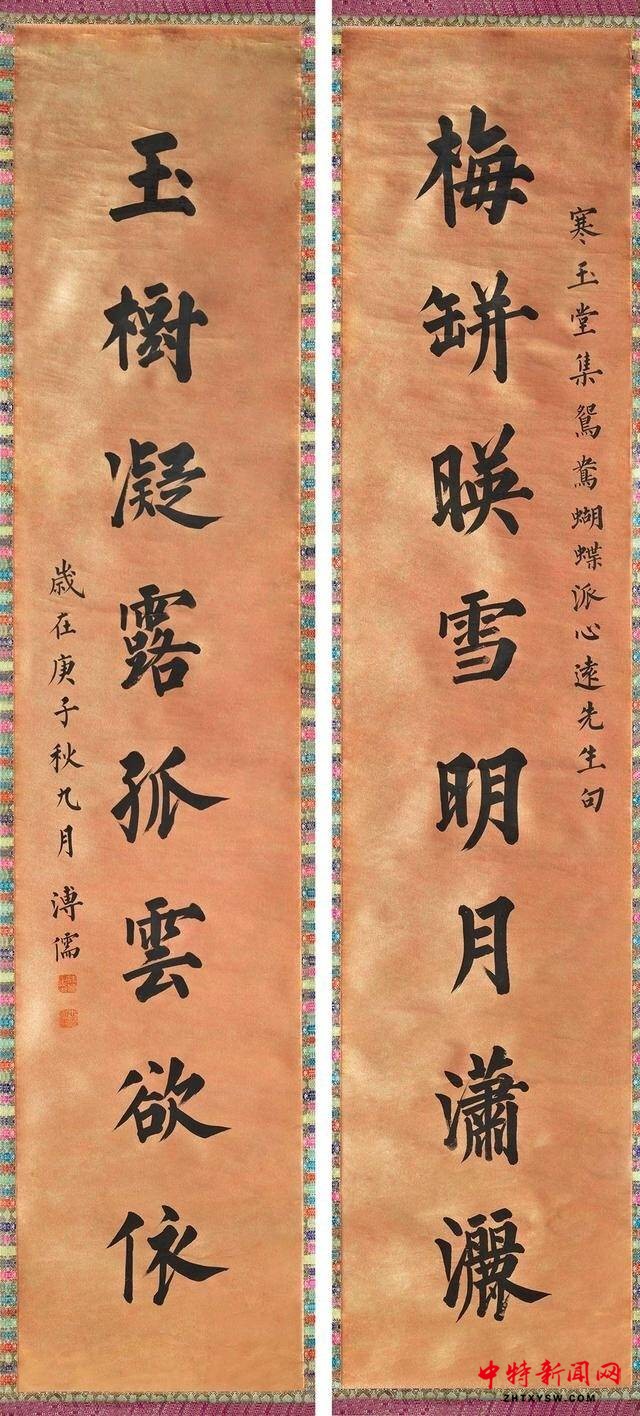 寒玉堂集鴛鴦蝴蝶派心遠先生句
梅缾暎雪明月瀟灑
玉樹凝露孤雲欲依
歲在庚子秋九月 溥儒
中特新闻网
ZHTXYSW.COM